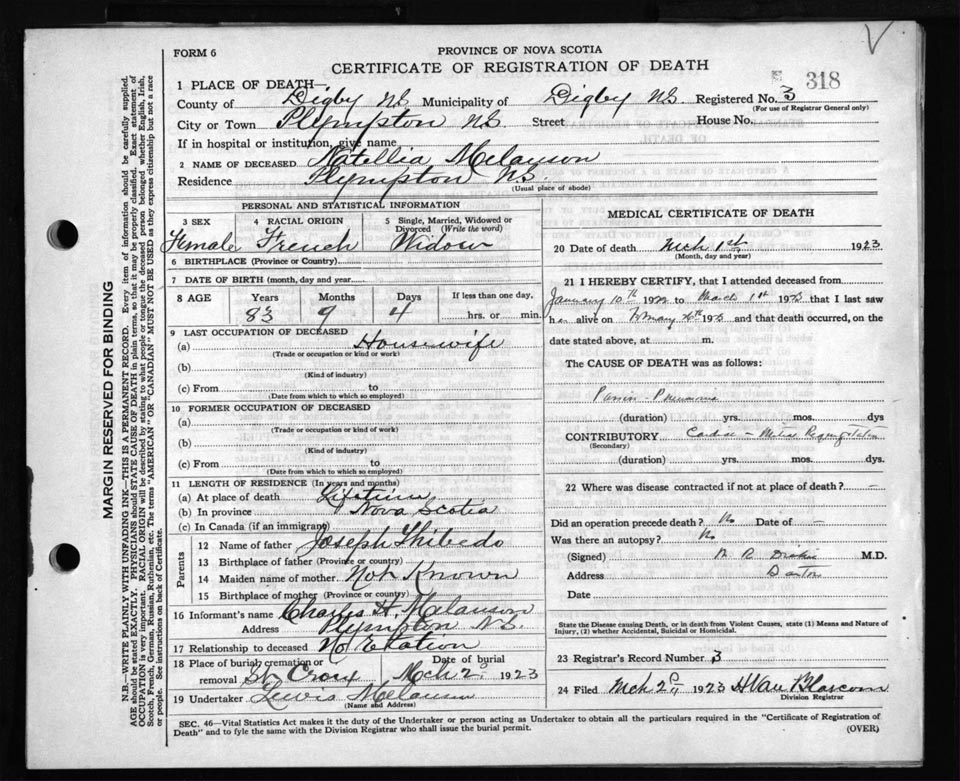 FORM 6
PROVINCE OF NOVA SCOTIA
CERTIFICATE OF REGISTRATION OF DEATH
318
1 PLACE OF DEATH—
County of Digby N.S. Municipality of Digby N.S. Registered No. 3
(For use of Registrar General only)
City or Town Plympton N.S. Street House No.
If in hospital or institution, give name
2 NAME OF DECEASED Natellia Melanson
Residence Plympton N.S.
(Usual place of abode)
PERSONAL AND STATISTICAL INFORMATION
3 SEX 4 RACIAL ORIGIN 5 Single, Married, Widowed or Divorced (Write the word)
Female French Widow
6 BIRTHPLACE (Province or Country)
7 DATE OF BIRTH (month, day and year
8 AGE Years Months Days If less than one day,
83 9 4 hrs. or min.
9 LAST OCCUPATION OF DECEASED
(a) Housewife
(Trade or occupation or kind or work)
(b)
(Kind of industry)
(c) From to
(Date from which to which so employed)
10 FORMER OCCUPATION OF DECEASED
(a)
(Trade or occupation or kind of work)
(b)
(Kind of industry)
(c) From to
(Date from which to which so employed)
11 LENGTH OF RESIDENCE (In years and months)
(a) At place of death Lifetime
(b) In province Nova Scotia
(c) In Canada (if an immigrant)
Parents
12 Name of father Joseph Thibedo
13 Birthplace of father (Province or country)
14 Maiden name of mother Not Known
15 Birthplace of mother (Province or country)
16 Informant's name Charles H. Melanson
Address Plympton N.S.
17 Relationship to deceased No Relation
18 Place of burial cremation or removal St. Croix Date of burial Mch 2 1923
19 Undertaker Lewis Melanson
(Name and Address)
MEDICAL CERTIFICATE OF DEATH
20 Date of death Mch 1st 1923
(Month, day and year)
21 I HEREBY CERTIFY, that I attended deceased from
January 10th to March 1st 1923 that I last saw
her alive on 1923 and that death occurred, on the
date stated above, at m.
The CAUSE OF DEATH was as follows:
Pneumonia
(duration) yrs. mos. dys
CONTRIBUTORY
(Secondary)
(duration) yrs. mos. dys.
22 Where was disease contracted if not at place of death? —
Did an operation precede death? No Date of —
Was there an autopsy? No
(Signed) M.D.
Address
Date
State the Disease causing Death, or in death from Violent Causes, state (1) Means and Nature of
Injury, (2) whether Accidental, Suicidal or Homicidal.
23 Registrar's Record Number 3
24 Filed Mch 2 1923 H Van Blarcom
Division Registrar
SEC. 46—Vital Statistics Act makes it the duty of the Undertaker or person acting as Undertaker to obtain all the particulars required in the "Certificate of Registration of
Death" and to fyle the same with the Division Registrar who shall issue the burial permit.
(OVER)
MARGIN RESERVED FOR BINDING
N.B.—WRITE PLAINLY WITH UNFADING INK—THIS IS A PERMANENT RECORD. Every item of information should be carefully supplied.
AGE should be stated EXACTLY. PHYSICIANS should STATE CAUSE OF DEATH in plain terms, so that it may be properly classified. Exact statement of
OCCUPATION is very important. RACIAL ORIGIN will be described by stating to what people or tongue the deceased person belonged whether English, Irish,
Scotch, French, German, Russian, Ruthenian, etc. The terms "AMERICAN" OR "CANADIAN" MUST NOT BE USED as they express citizenship but not a race
or people. See instructions on back of Certificate.